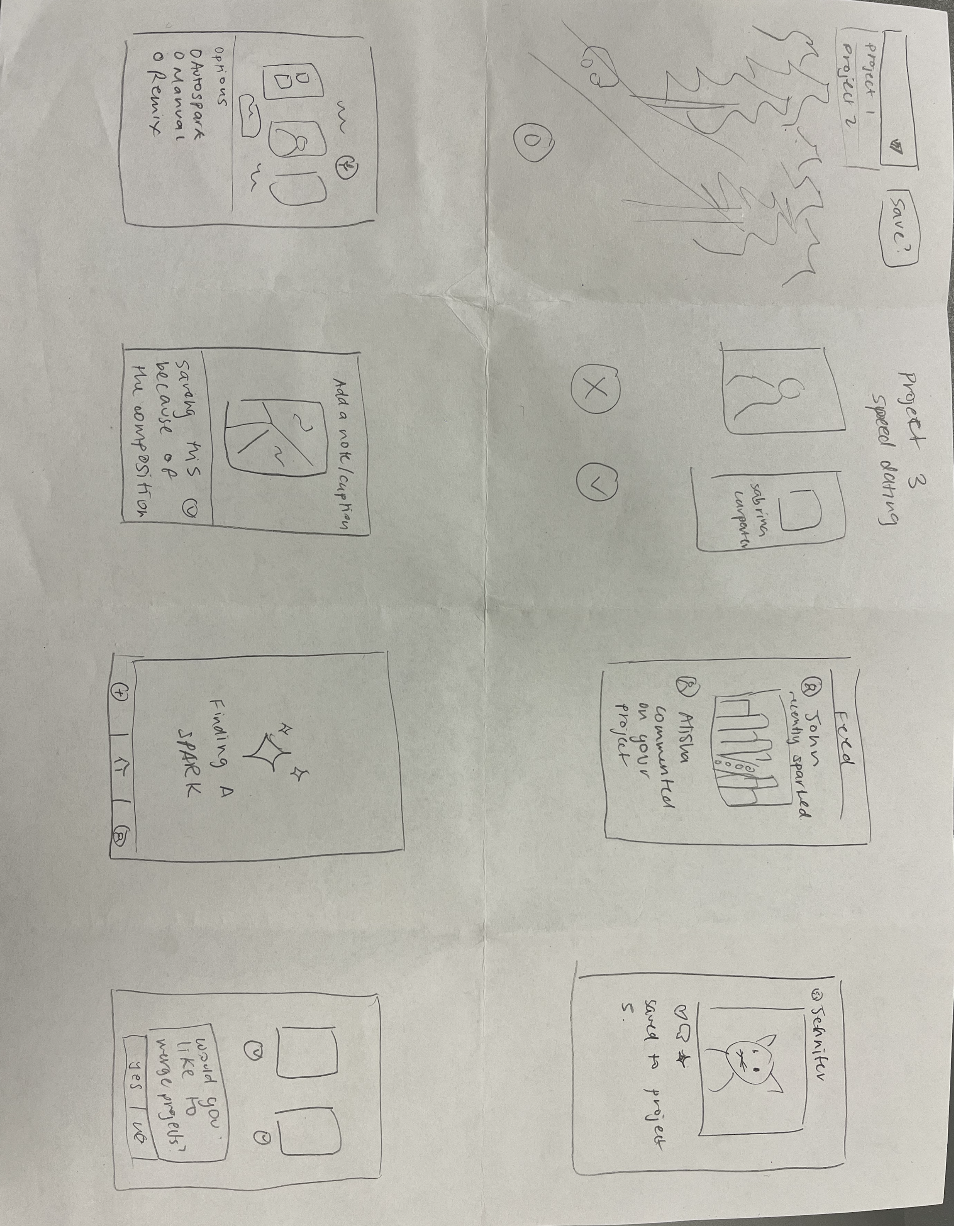 project 1
project 2
save?
project 3
speed dating
sabrina
carpater
Feed
John
recently sparked
Alisha
commented
on your
project
Jennifer
saved to project
5.
options
Autospark
Manual
Remix
Add a note/caption
Saving this
because of
the composition
Finding A
SPARK
would you
like to
merge projects?
yes | no